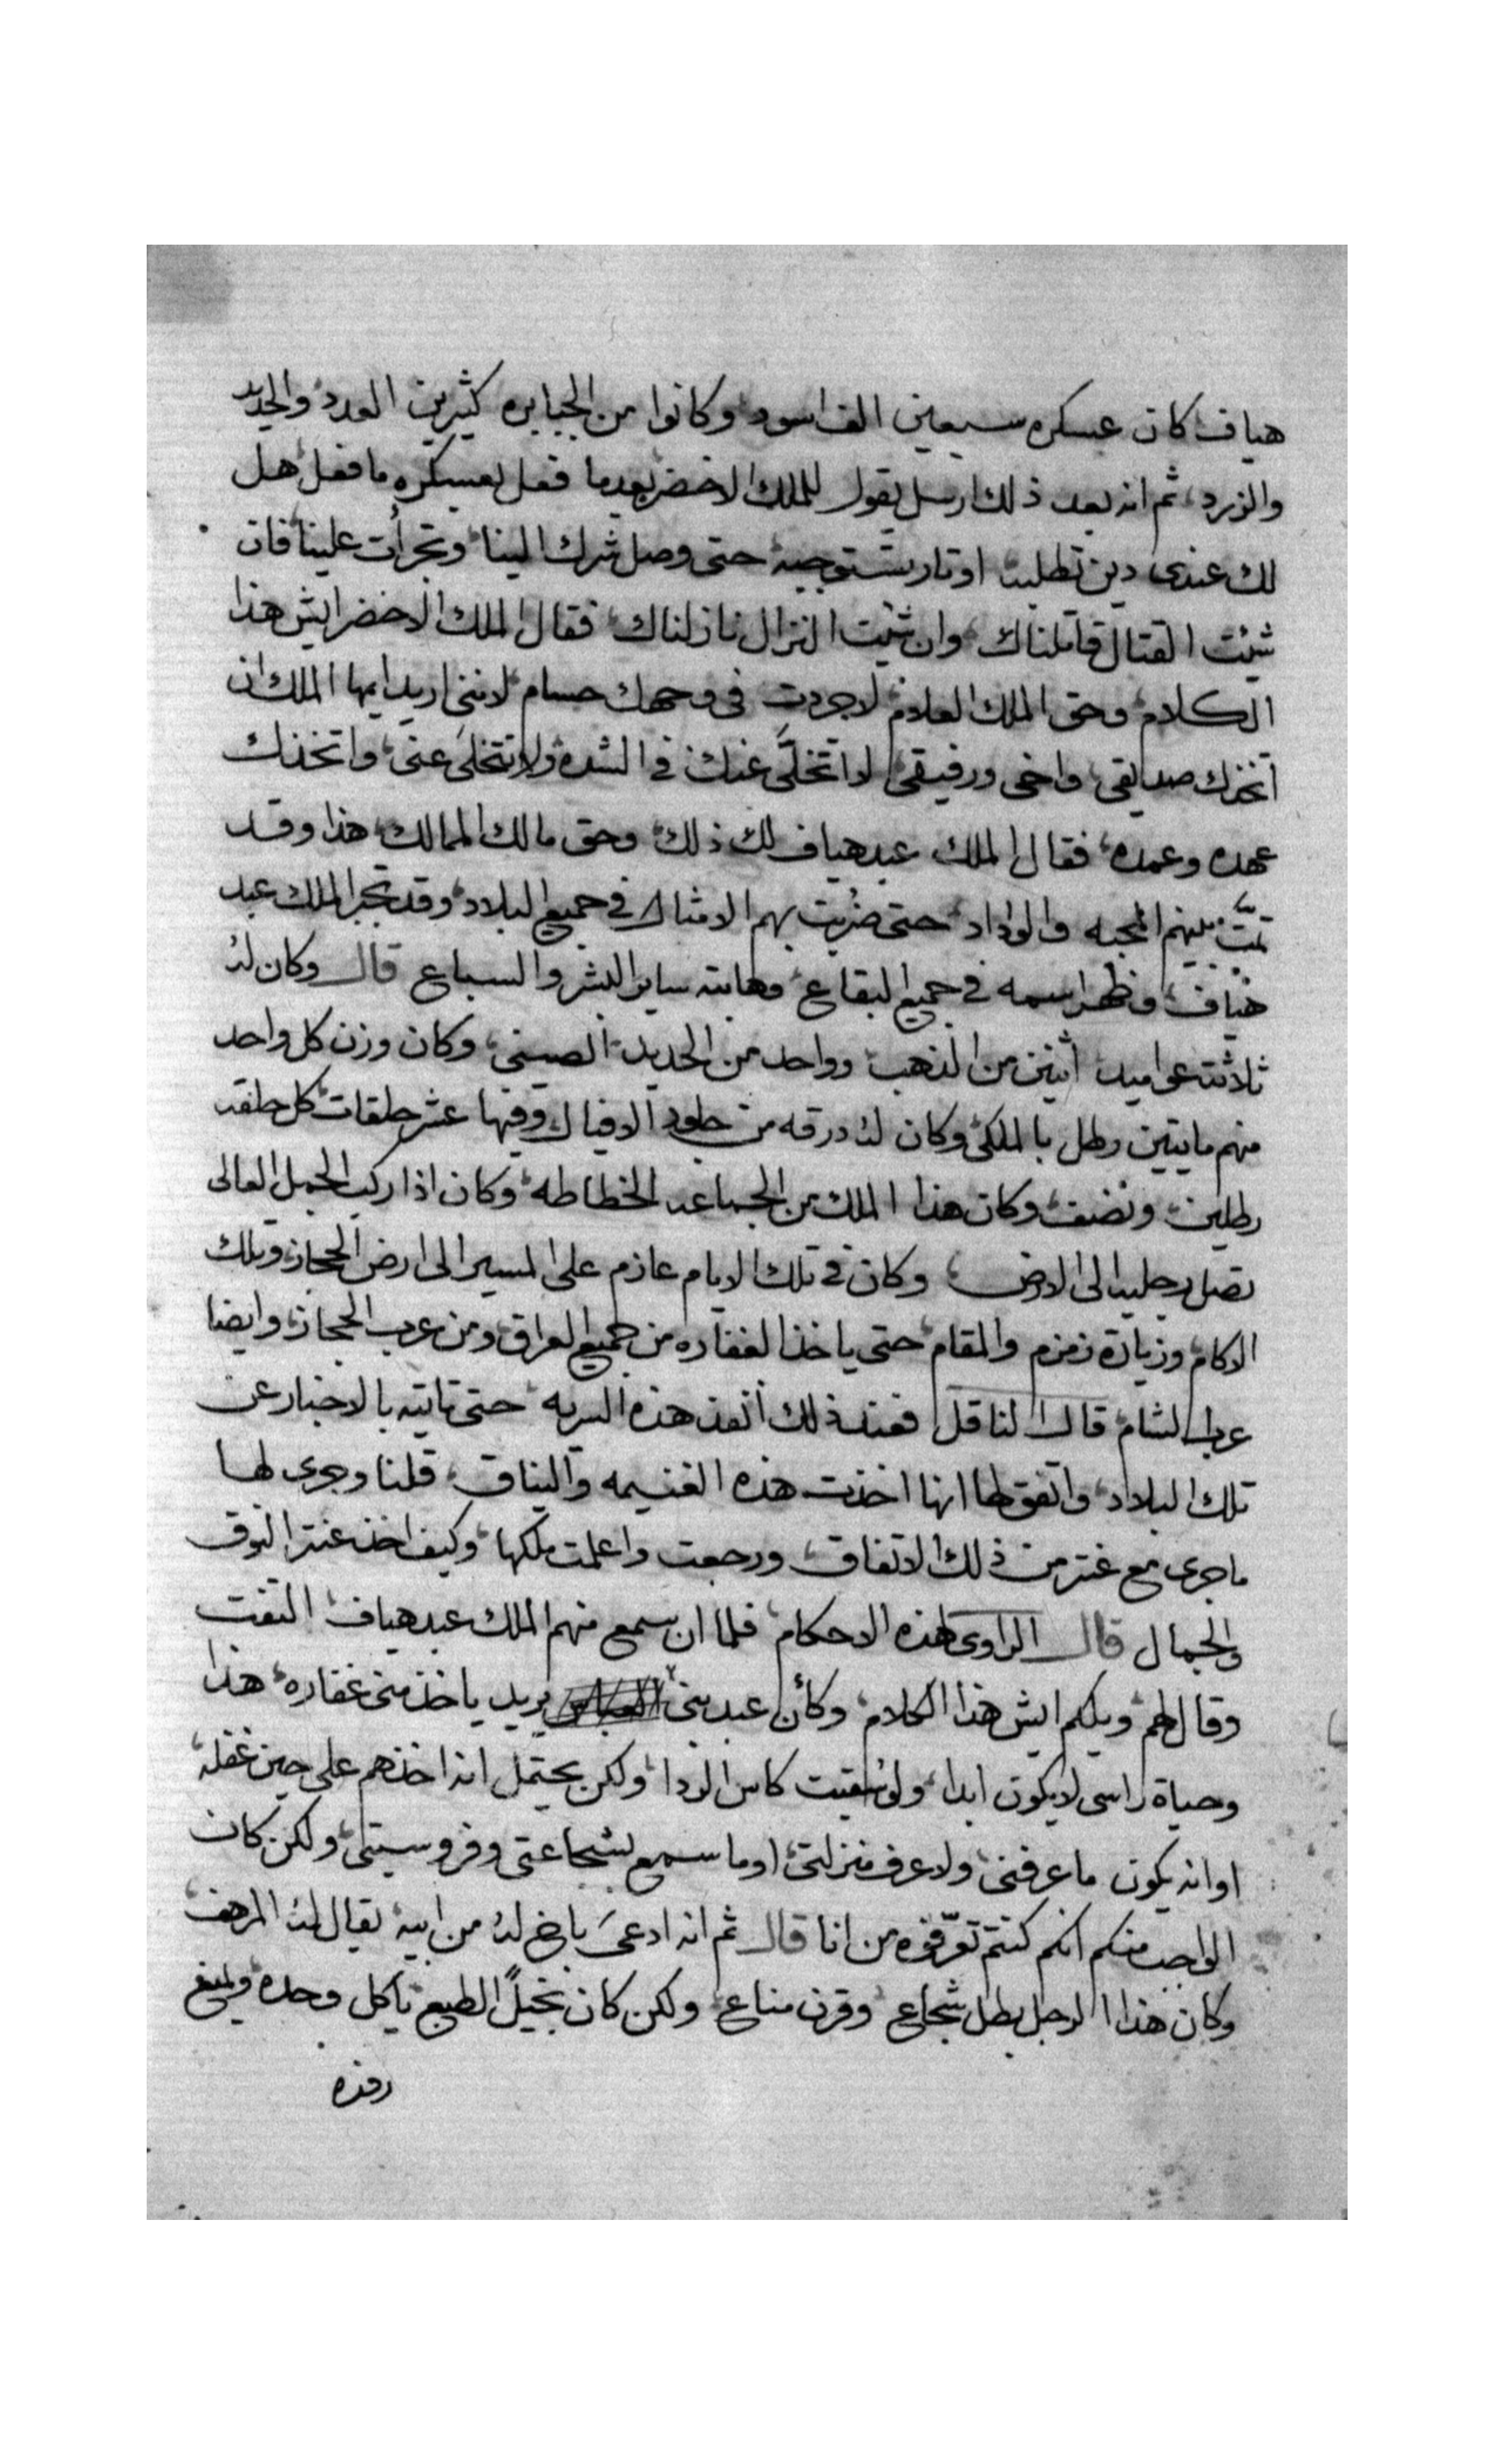 هياف كان عسكره سبعين الف اسود وكانوا من الجبابره كثيرين العدد والحديد
والزرد ثم انه بعد ذلك ارسل يقول للملك الاخضر بعدما فعل بعسكره ما فعل هل
لك عندى دين تطلبه او تار تستوجبه حتى وصل شرك الينا وتجرأت علينا فان
شئت القتال قاتلناك وان شئت النزال نازلناك فقال الملك الاخضر ايش هذا
الكلام وحق الملك العلام لا جردت فى وجهك حسام لاننى اريد ايها الملك ان
اتخذك صديقى واخى ورفيقى لا اتخلَّى عنك في الشده ولا تتخلى عنى واتخذك
عهده وعمده فقال الملك عبد هياف لك ذلك وحق مالك الممالك هذا وقد
تمّت بينهم المحبه والوداد حتى ضربت بهم الامثال في جميع البلاد وقد تجبر الملك عبد
هياف وظهر اسمه في جميع البقاع وهابته ساير البشر والسباع قال وكان له
ثلاثة عواميد اثنين من الذهب وواحد من الحديد الصينى وكان وزن كل واحد
منهم مايتين رطل بالملكى وكان له درقه من جلود الافيال وفيها عشر حلقات كل حلقه
رطلين ونصف وكان هذا الملك من الجماعه الخطاطه وكان اذا ركب الجمل العالى
تصل رجليه الى الارض وكان في تلك الايام عازم على المسير الى ارض الحجاز وتلك
الاكام وزيارة زمزم والمقام حتى ياخذ الغفاره من جميع العراق ومن عرب الحجاز وايضا
عرب الشام قال الناقل فعند ذلك انفذ هذه السريه حتى تاتيه بالاخبار عن
تلك البلاد واتفق لها انها اخذت هذه الغنيمه والنياق قلنا وجرى لها
ما جرى مع عنتر من ذلك الاتفاق ورجعت واعلمت ملكها وكيف اخذ عنتر النوق
والجمال قال الراوى لهذه الاحكام فلما ان سمع منهم الملك عبد هياف التفت
وقال لهم ويلكم ايش هذا الكلام وكأن عبد بنى يريد ياخذ منى غفاره هذا
وحياة راسى لا يكون ابدا ولو سقيت كاس الردا ولكن يحتمل انه اخذهم على حين غفله
او انه يكون ما عرفنى ولا عرف منزلتى او ما سمع بشجاعتى وفروسيتى ولكن كان
الواجب منكم انكم كنتم توّرفوه من انا قال ثم انه ادعى باخ له من ابيه يقال له المرهف
وكان هذا الرجل بطل شجاع وقرن مناع ولكن كان بخيلً الطبع ياكل وحده ويمنع
رفده